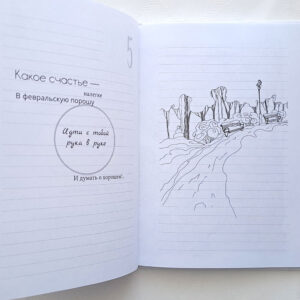 5
Какое счастье —
налегке
В февральскую порошу
Идти с тобой
рука в руке
И думать о хорошем!